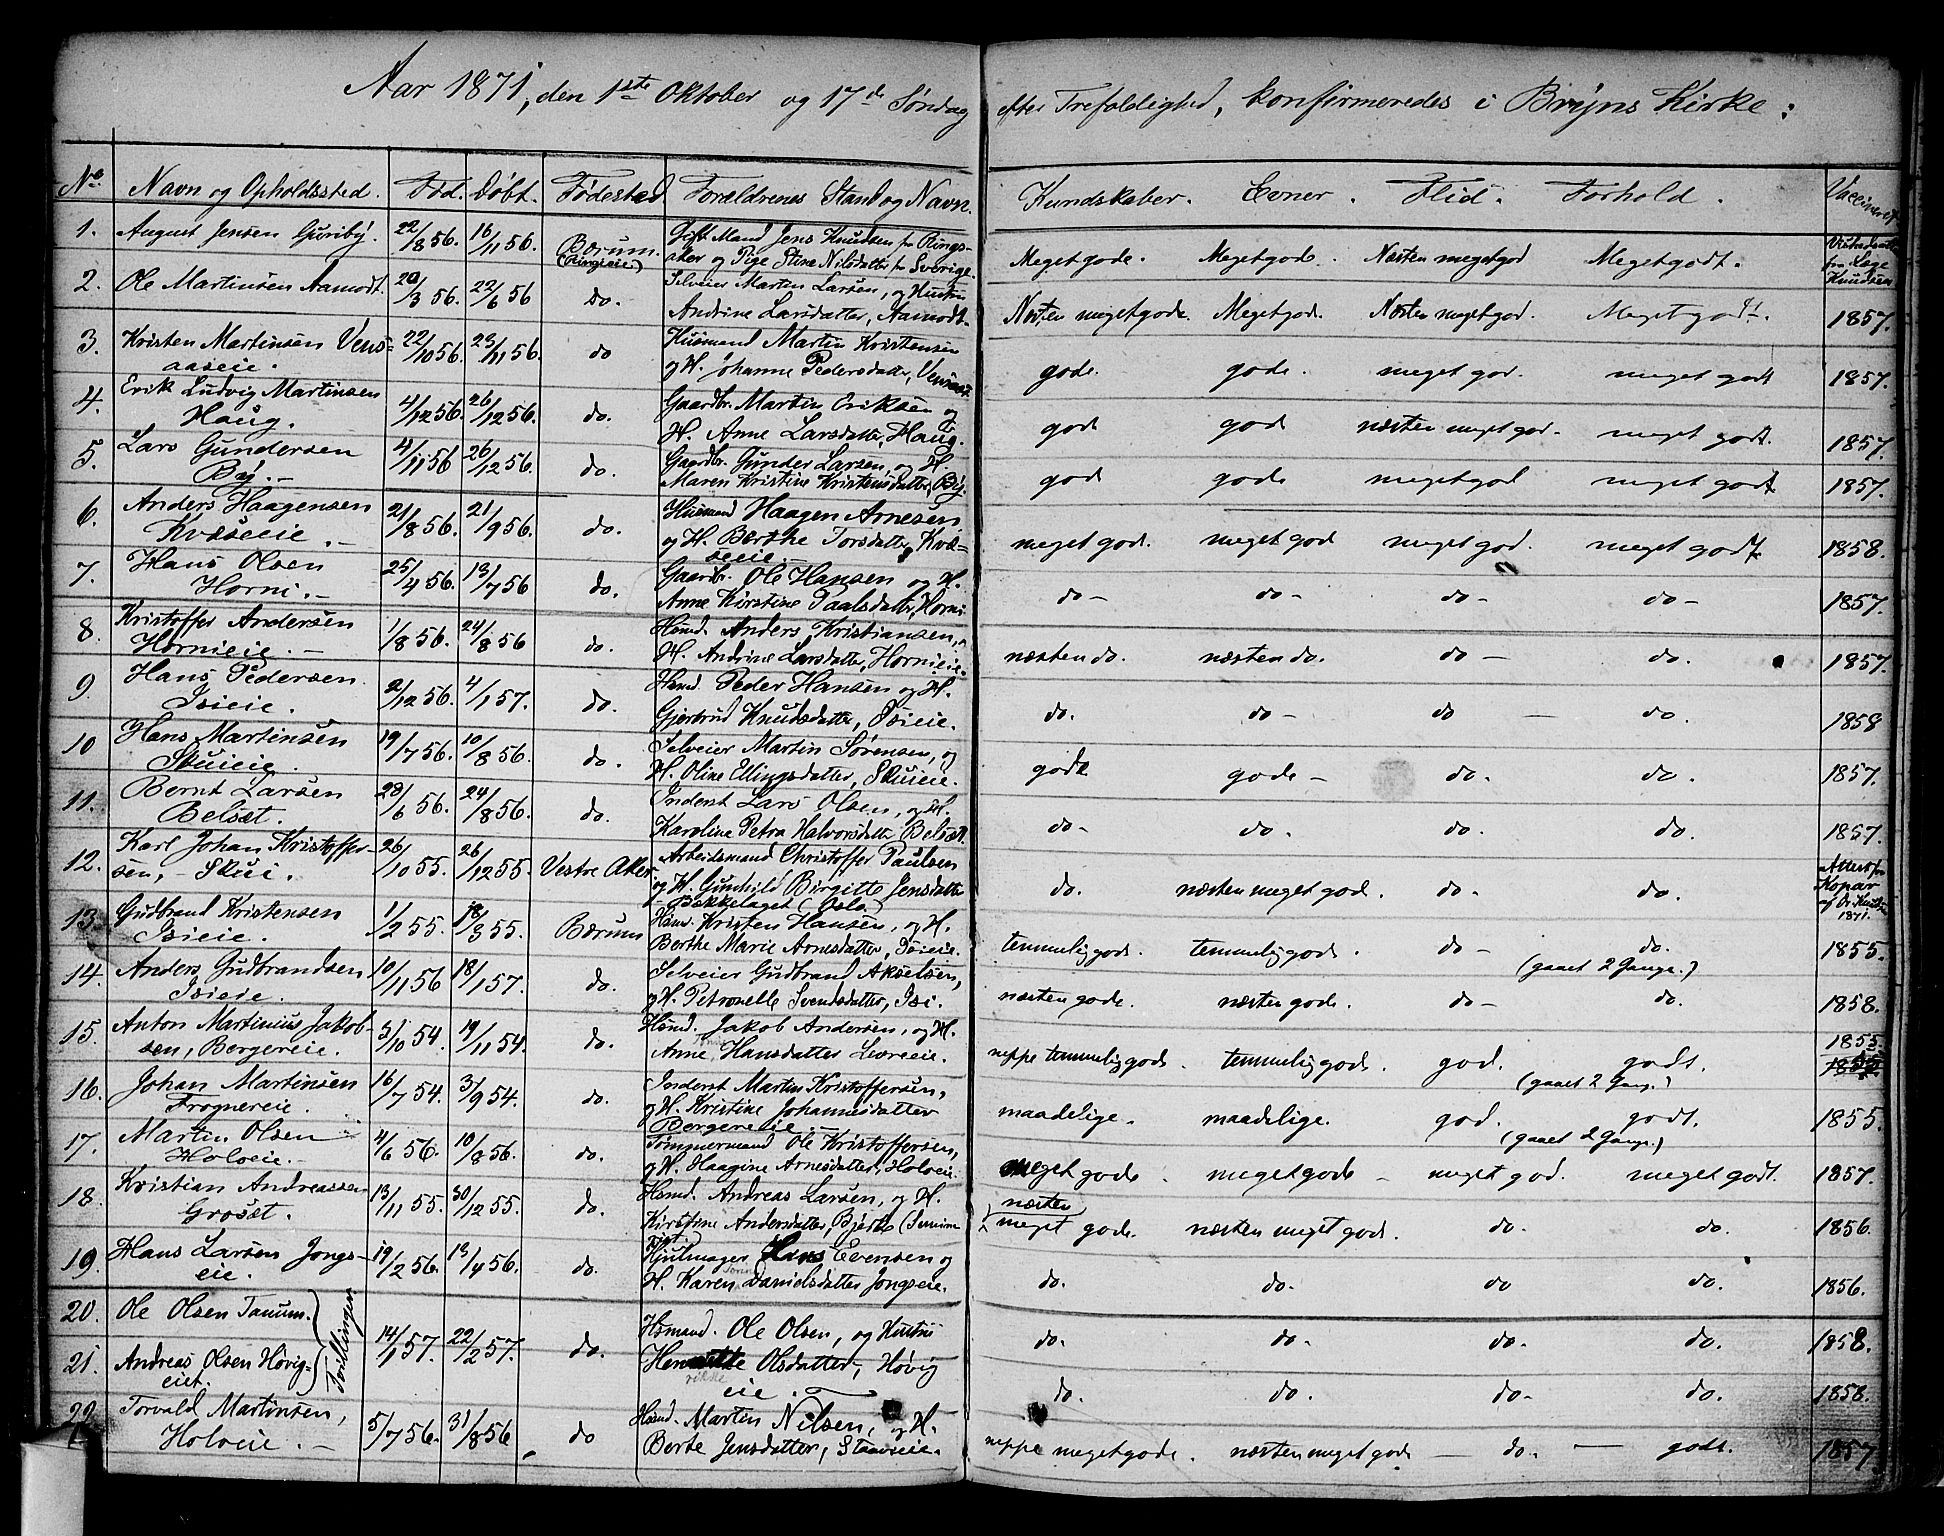 Aar 1871, den 1ste Oktober og 17de Søndag efter Trefoldighed, konfirmeredes i Bryns Kirke:
No Navn og Opholdssted. Fød. Døbt. Fødested Forældrenes Stand og Navn. Kundskaber. Evner. Flid. Forhold. Vaccineret
1. August Jensen Guriby. 22/8 56. 16/11 56. Bærum. Gift Mand Jens Knudsen fr Rings- Meget gode. Meget gode. Næsten meget god Meget godt.
aker og Pige Stine Nilsdatter fr Sverige. Knudsen
2. Ole Martinsen Aamodt. 20/3 56. 22/6 56 do. Selveier Martin Larsen, og Hustru Næsten meget gode. Meget god. Næsten meget god. Meget godt. 1857.
Andrine Larsdatter, Aamodt.
3. Kristen Martinsen Vens- 22/10 56. 23/11 56. do Husmand Martin Kristensen gode. gode. meget god. meget godt 1857.
aaseie. og H. Johanne Pedersdatter,
4. Erik Ludvig Martinsen 4/12 56. 26/12 56. do. Gaardbr. Martin Eriksen og god gode næsten meget god. meget godt. 1857.
Haug. H. Anne Larsdatter, Haug.
5. Lars Gundersen 4/11 56 26/12 56. do. Gaardbr. Gunder Larsen, og H. god gode meget god meget godt 1857.
By. Maren Kristine Kristensdatter, By.
6. Anders Haagensen 21/8 56. 21/9 56. do. Husmand Haagen Arnesen meget god. meget gode meget god. meget godt 1858.
Kvæseie. og H. Berthe Torsdatter, Kvæ-
seie.
7. Hans Olsen 25/4 56. 13/7 56 do. Gaardbr. Ole Hansen og H. do do do do 1857.
Horni. Anne Kirstine Paalsdatter, Horni
8. Kristoffer Andersen 1/8 56. 24/8 56 do. Hsmd. Anders Kristiansen, næsten do. næsten do. do do. 1857.
Hornieie. H. Andrine Larsdatter, Hornieie.
9 Hans Pedersen 2/12 56. 4/1 57. do. Hsmd. Peder Hansen og H. do. do do do. 1858
Isieie. Gjertrud Knudsdatter, Isieie.
10 Hans Martinsen 19/7 56. 10/8 56. do. Selveier Martin Sørensen, og gode gode do. do. 1857.
Skuieie. H. Oline Ellingsdatter, Skuieie.
11. Bernt Larsen 28/6 56. 24/8 56. do. Inderst Lars Olsen, og H. do do. do. do. 1857.
Belset. Karoline Petra Halvorsdatter Belset.
12. Karl Johan Kristoffer- 26/10 55. 26/12 55. Vestre Aker Arbeidsmand Christoffer Paulsen do. næsten meget gode. do. do. Attest fr
sen, Skui. og H. Gunhild Birgitte Jensdatter 1871.
Bækkelaget (Oslo.
13. Gudbrand Kristensen 1/2 55. 18/3 55. Bærum Hsmd. Kristen Hansen, og H. temmelig gode. temmelig gode. do do. 1855.
Isieie. Berthe Marie Arnesdatter, Isieie. (gaaet 2 Gange.)
14. Anders Gudbrandsen 10/11 56 18/1 57. do. Selveier Gudbrand Akselsen, næsten gode. næsten gode. do do. 1858.
Isieie. og H. Petronelle Svendsdatter, Isi.
15. Anton Martinius Jakob- 3/10 54. 19/11 54. do. Hsmd. Jakob Andersen, og H. neppe temmelig gode. temmelig gode. god. godt. 1855.
sen, Bergereie. Anne Hansdatter (gaaet 2 Gang.)
16. Johan Martinsen 16/7 54. 3/9 54. do. Inderst Martin Kristoffersen, maadelige. maadelige. god. godt. 1855.
Frognereie. og H. Kristine Johannesdatter (gaaet 2 Gange.)
Bergereie.
17. Martin Olsen 4/6 56. 10/8 56. do. Tømmermand Ole Kristoffersen, meget gode. meget gode meget god. meget godt. 1857.
Holveie. og H. Haagine Arnesdatter, Holveie.
18. Kristian Andreassen 13/11 55. 30/12 55. do. Hsmd. Andreas Larsen, og H. næsten meget gode. næsten meget gode. do. do. 1856.
Grosæt. Kirstine Andersdatter, Bjerke
19. Hans Larsen Jongs- 19/2 56. 13/4 56. do. Hjulmager Hans Evensen og do. do. do do. 1856.
eie. H. Karen Danielsdatter Jongseie.
20. Ole Olsen Tanum. Tvillinger 14/1 57. 22/2 57. do. Hsmand. Ole Olsen, og Hustru do. do. do. do. 1858.
21. Andreas Olsen Høvig- Olsdatter, Høvig do. do. do do. 1858.
eiet. rikke eie.
22 Torvald Martinsen, 5/7 56. 31/8 56 do Hsmd. Martin Nilsen, og H. neppe meget gode. næsten meget gode do. godt. 1857.
Holveie. Berte Jensdatter, Staveie.